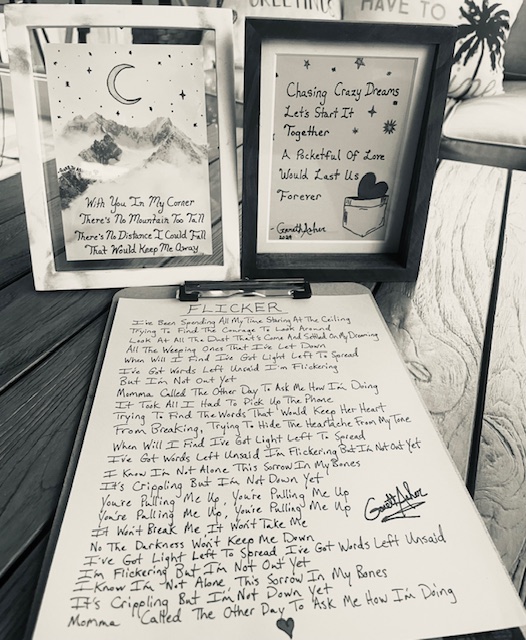 GREETINGS
HAVE TO
With You In My Corner
There's No Mountain Too Tall
There's No Distance I Could Fall
That Would Keep Me Away
Chasing Crazy Dreams
Let's Start It
Together
A Pocketful Of Love
Would Last Us
Forever
- Garrett Asher
2024
FLICKER
I've Been Spending All My Time Staring At The Ceiling
Trying To Find The Courage To Look Around
Look At All The Dust That's Come And Settled On My Dreaming
All The Weeping Ones That I've Let Down
When Will I Find I've Got Light Left To Spread
I've Got Words Left Unsaid I'm Flickering
But I'm Not Out Yet
Momma Called The Other Day To Ask Me How I'm Doing
It Took All I Had To Pick Up The Phone
Trying To Find The Words That Would Keep Her Heart
From Breaking, Trying To Hide The Heartache From My Tone
When Will I Find I've Got Light Left To Spread
I've Got Words Left Unsaid I'm Flickering But I'm Not Out Yet
I Know I'm Not Alone This Sorrow In My Bones
It's Crippling But I'm Not Down Yet
You're Pulling Me Up, You're Pulling Me Up
You're Pulling Me Up, You're Pulling Me Up
It Won't Break Me It Won't Take Me
Garrett Asher
No The Darkness Won't Keep Me Down
I've Got Light Left To Spread I've Got Words Left Unsaid
I'm Flickering But I'm Not Out Yet
I Know I'm Not Alone This Sorrow In My Bones
It's Crippling But I'm Not Down Yet
Momma Called The Other Day To Ask Me How I'm Doing